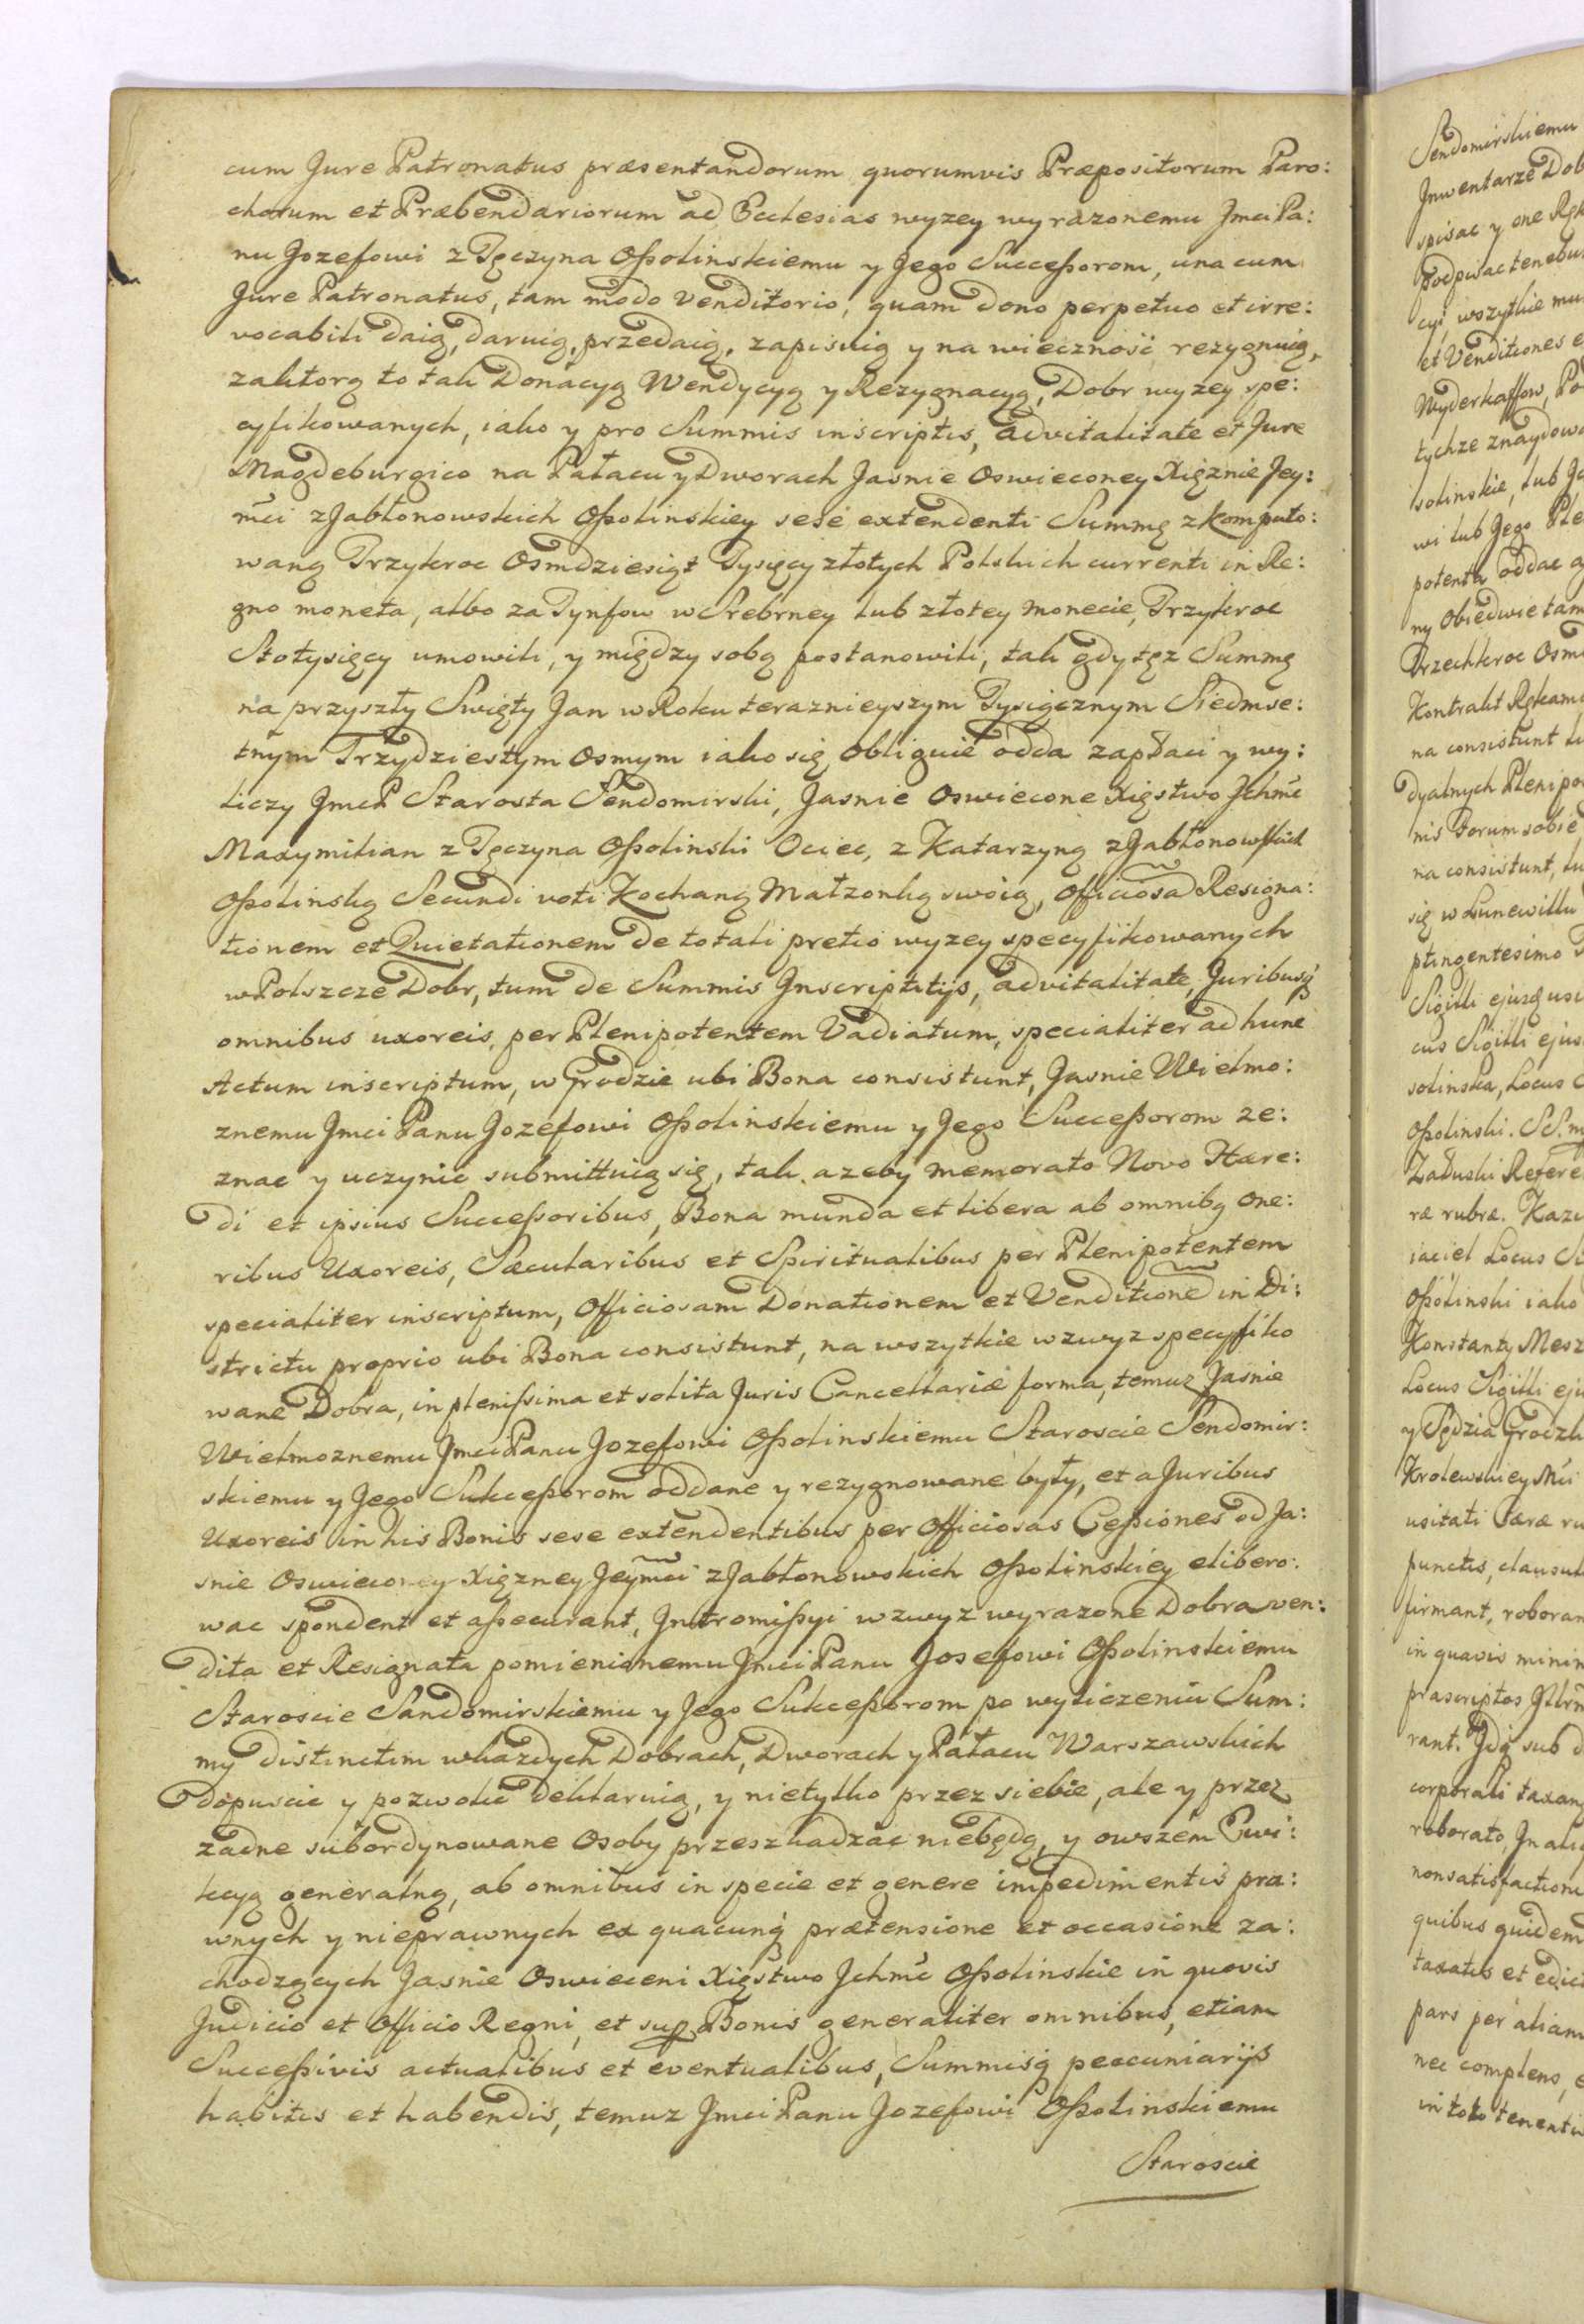 cum Jure Patronatus præsentandorum quorumvis Præpositorum Paro:
chorum et Præbendariorum ad Ecclesias wyzey wyrazonemu Jmci Pa:
nu Jozefowi z Tęczyna Oßolinskiemu y Jego Succeßorom, una cum
Jure Patronatus, tam modo venditorio, quam dono perpetuo et irre:
vocabili daią, daruią, przedaią, zapisuią y na wiecznosć rezygnuią,
zaktorą to tak Donacyą Wendycyą y Rezygnacyą, Dobr wyzey spe:
cyfikowanych, iako y pro Summis inscriptis, advitalitate et Jure
Magdeburgico na Pałacu y Dworach Jasnie Oswieconey Xięznie Jey:
mći z Jabłonowskich Oßolinskiey sese extendenti Summę zkomputo:
waną Trzykroc Osmdziesiąt Tysięcy złotych Polskich currenti in Re:
gno moneta, albo za Tynfow w Srebrney lub złotey monecie, Trzykroc
Stotysięcy umowili, y między sobą postanowili, tak gdy tęz Summę
na przyszły Swięty Jan w Roku teraznieyszym Tysiącznym Siedmse:
tnym Trzydziestym Osmym iako się obliguie odda zapłaci y wy:
liczy JmcP Starosta Sendomirski, Jasnie Oswiecone Xięstwo Jchmć
Maxymilian z Tęczyna Oßolinski Ociec, z Katarzyną z Jabłonowskich
Oßolinską Secundi voti Kochaną Małzonką swoią, Officiosã Resigna:
tionem et Quietationem de totali pretio wyzey specyfikowanych
w Polszcze Dobr, tum de Summis Inscriptitijs, advitalitate, Juribusq́
omnibus uxoreis, per Plenipotentem Vadiatum, specialiter ad hunc
Actum inscriptum, w Grodzie ubi Bona consistunt, Jasnie Wielmo:
znemu Jmci Panu Jozefowi Oßolinskiemu y Jego Succeßorom ze:
znac y uczynic submittuią się, tak azeby memorato Novo Hære:
di et ipsius Succeßoribus, Bona munda et libera ab omnibq One:
ribus Uxoreis, Sæcularibus et Spiritualibus per Plenipotentem
specialiter inscriptum, Officiosam Donationem et Venditionẽ in Di:
strictu proprio ubi Bona consistunt, na wszytkie wzwyz specyfiko
wane Dobra, in plenißima et solita Juris Cancellariæ forma, temuz Jasnie
Wielmoznemu Jmci Panu Jozefowi Oßolinskiemu Staroscie Sendomir:
skiemu y Jego Sukceßorom oddane y rezygnowane były, et a Juribus
Uxoreis in his Bonis sese extendentibus per Officiosas Ceßiones od Ja:
snie Oswieconey Xięzney Jeym̃ci z Jabłonowskich Oßolinskiey elibero:
wac spondent et aßecurant, Intromißyi wzwyz wyrazone Dobra ven:
dita et Resignata pomienionemu Jmci Panu Josefowi Oßolinskiemu
Staroscie Sandomirskiemu y Jego Sukceßorom po wyliczeniu Sum:
my distinctim wkazdych Dobrach, Dworach y Pałacu Warszawskich
dopuscic y pozwolic deklaruią, y nietylko przez siebie, ale y przez
zadne subordynowane Osoby przeszkadzac niebędą, y owszem Ewi:
kcyą generalną, ab omnibus in specie et genere impedimentis pra:
wnych y nieprawnych ex quacunq́ prætensione et occasione za:
chodzących Jasnie Oswieceni Xięstwo Jchmć Oßolinskie in quovis
Judicio et Officio Regni, et sup Bonis generaliter omnibus, etiam
Succeßivis actualibus et eventualibus, Summisq́ peccuniarijs
habitis et habendis, temuz Jmci Panu Jozefowi Oßolinskiemu
Staroscie
Sendomirskiemu
Jnwentarze Dob
spisac y one Ręk
podpisac tenebu
cyi wszytkie mu
et Venditiones e
Wyderkaffow, Po
tychze znaydowa
solinskie, lub Je
wi lub Jego Ple
potenta oddac
ny Obiedwie tam
Trzechkroc Osm
Kontrakt Rękami
na consistunt
dyalnych Plenipo
nis Forum sobie
na consistunt, lu
się w Lunewillu
ptingentesimo
Sigilli ejusq usi
cus Sigilli ejus
solinska, Locus
Oßolinski. SS. m
Załuski Refere
ræ rubræ. Kazi
iaciel Locus Si
Oßolinski iako
Konstanty Mesz
Locus Sigilli eju
y Sędzia Grodzk
Krolewskiey Mći
usitati Cæræ ru
punctis, clausul
firmant, roboran
in quavis minim
præscriptos
rant. Idq sub
corporali taxan
roborato, In aliq
nonsatisfactione
quibus quidem
taxatis et edici
pars per aliam
nec complens, e
in toto tenentu